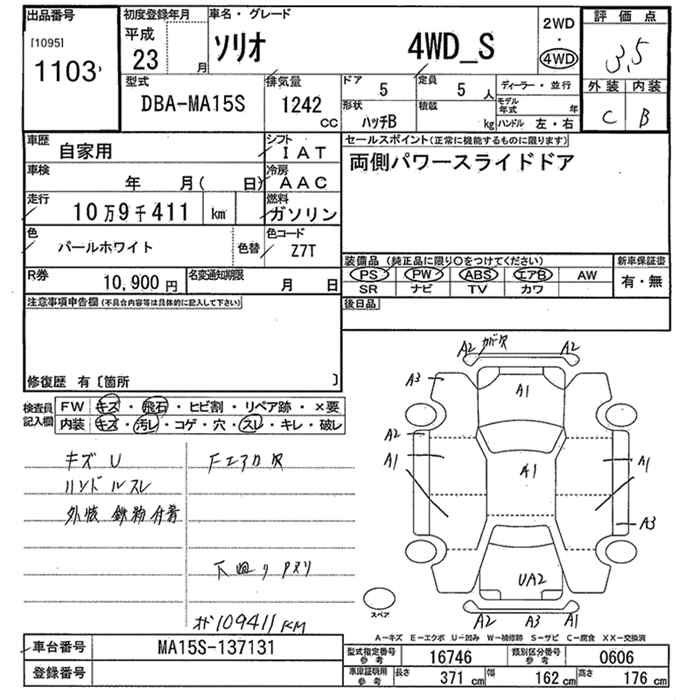 出品番号
[1095]
1103
初度登録年月
平成
23 月
車名・グレード
ソリオ 4WD_S
2WD
・
4WD
評価点
3.5
外装 内装
C B
型式
DBA-MA15S
排気量
1242
CC
ドア
5
定員
5 人
形状
ハッチB
積載
kg
ディーラー・並行
モデル年式 年
ハンドル 左・右
車歴
自家用
シフト
IAT
車検
年 月( 日)
冷房
AAC
走行
10万9千411 km
燃料
ガソリン
色
パールホワイト
色替
色コード
Z7T
R券
10,900 円
名変通知期限
月 日
セールスポイント(正常に機能するものに限ります)
両側パワースライドドア
装備品 (純正品に限り○をつけてください)
新車保証書
PS PW ABS エアB AW
有・無
SR ナビ TV カワ
後日品
注意事項申告欄(不具合内容等は具体的に記入して下さい)
修復歴 有〔箇所 〕
検査員
記入欄
FW キズ・飛石・ヒビ割・リペア跡・×要
内装 キズ・汚レ・コゲ・穴・スレ・キレ・破レ
キズU
ハンドルスレ
外装 鉄粉付着
Fエアロ欠
下廻りサビ
メーター109411KM
A2 カバー欠 A2
A3
A1
A2
A1
A1
A1
A3
UA2
A2 A3 A1
スペア
A-キズ E-エクボ U-凹み W-補修跡 S-サビ C-腐食 XX-交換済
車台番号
MA15S-137131
登録番号
型式指定番号
参考
16746
類別区分番号
参考
0606
車庫証明用
参考
長さ 371 cm
幅 162 cm
高さ 176 cm